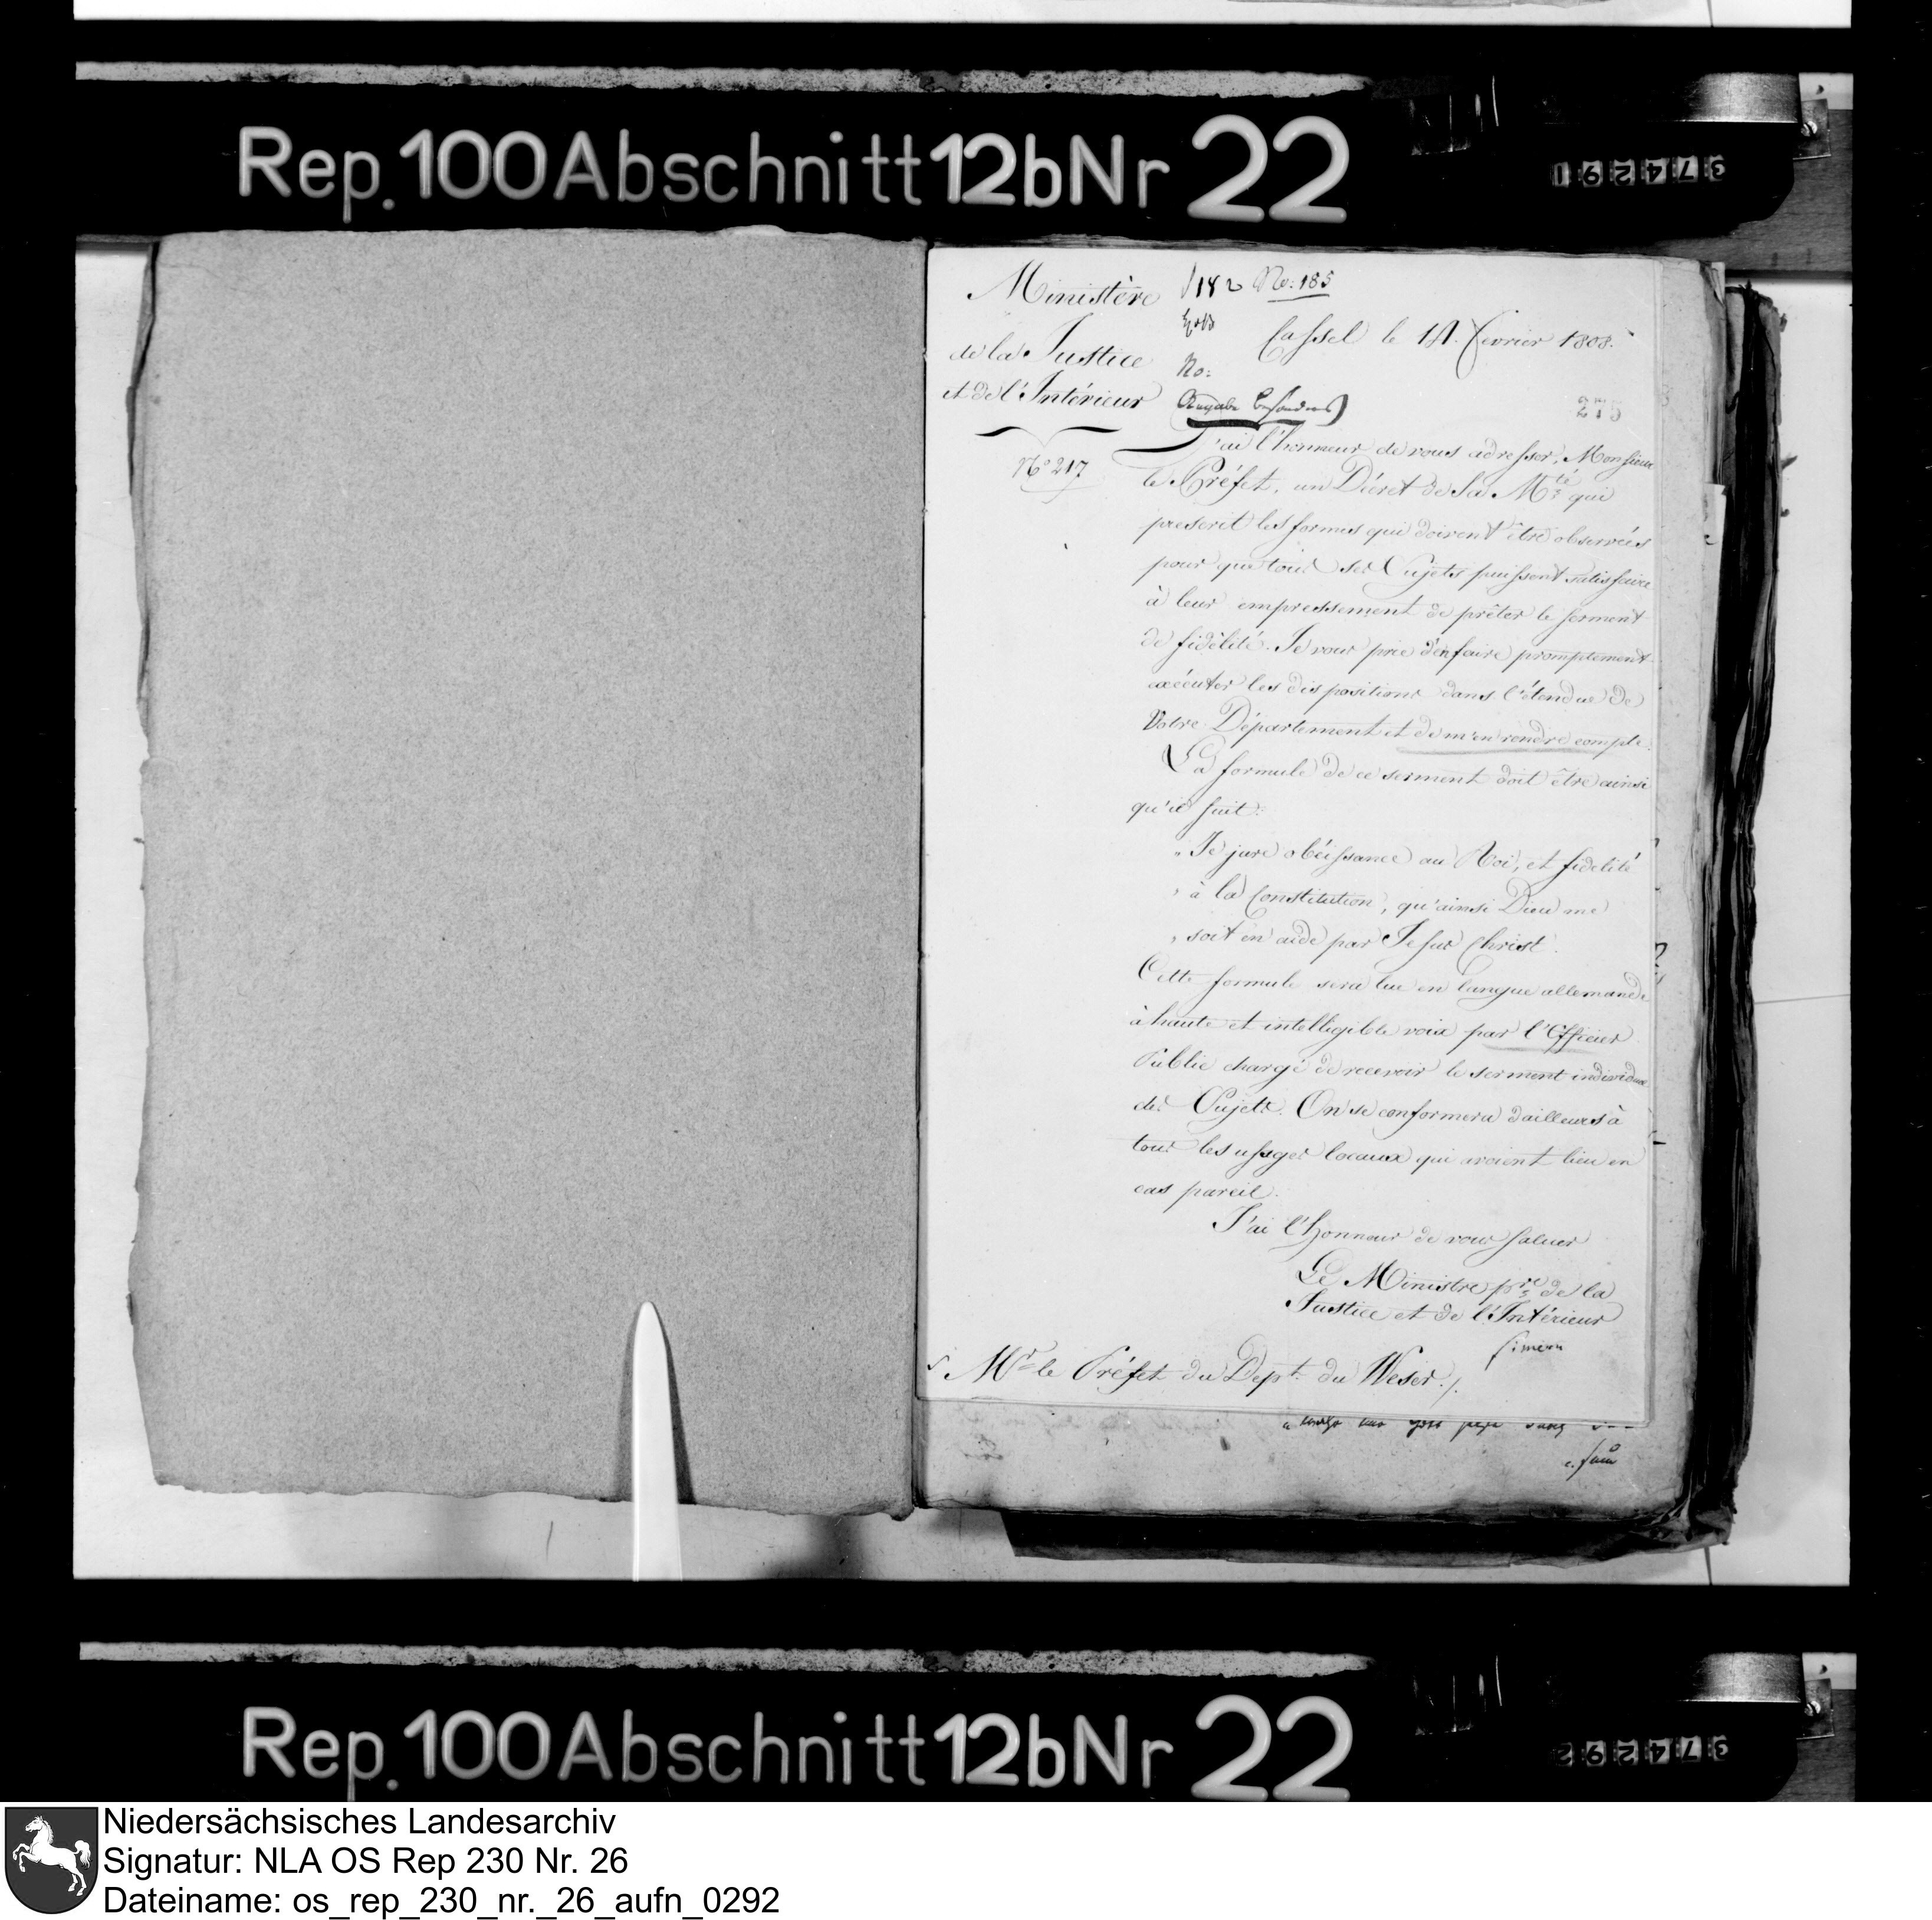 Rep. 100 Abschnitt 12b Nr 22
374291
Ministère
de la Justice
et de l'Intérieur
N° 217
182 No: 185
Cassel le 14. fevrier 1808.
No:
275
J'ai l'honneur de vous adresser, Monsieur
le Préfet, un Décret de Sa M.té qui
prescrit les formes qui doivent être observées
pour que tous ses Sujets puissent satisfaire
à leur empressement de prêter le serment
de fidélité. Je vous prie d'en faire promptement
exécuter les dispositions dans l'étendue de
Votre Département et de m'en rendre compte.
La formule de ce serment doit être ainsi
qu'il suit:
„ Je jure obéissance au Roi, et fidelité
„ à la Constitution, qu'ainsi Dieu me
„ soit en aide par Jesus Christ.
Cette formule sera lue en langue allemande
à haute et intelligible voix par l'Officier
Public chargé de recevoir le serment individuel
des Sujets. On se conformera d'ailleurs à
tous les usages locaux qui avoient lieu en
cas pareil.
J'ai l'honneur de vous saluer
Le Ministre p.re de la
Justice et de l'Intérieur
Simeon
Mr. le Préfet du Dept. du Weser ./.
Rep. 100 Abschnitt 12b Nr 22
374292
Niedersächsisches Landesarchiv
Signatur: NLA OS Rep 230 Nr. 26
Dateiname: os_rep_230_nr._26_aufn_0292